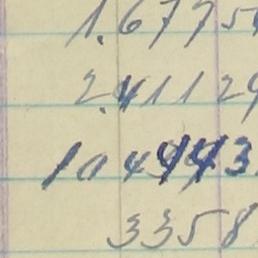 1.6775
2.41129
104443
3358